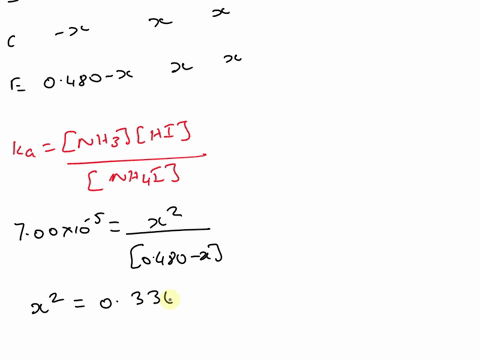 C -x x x
E 0.480-x x x
Ka = [NH3][HI]
[NH4I]
7.00×10^-5 = x^2
[0.480-x]
x^2 = 0.336